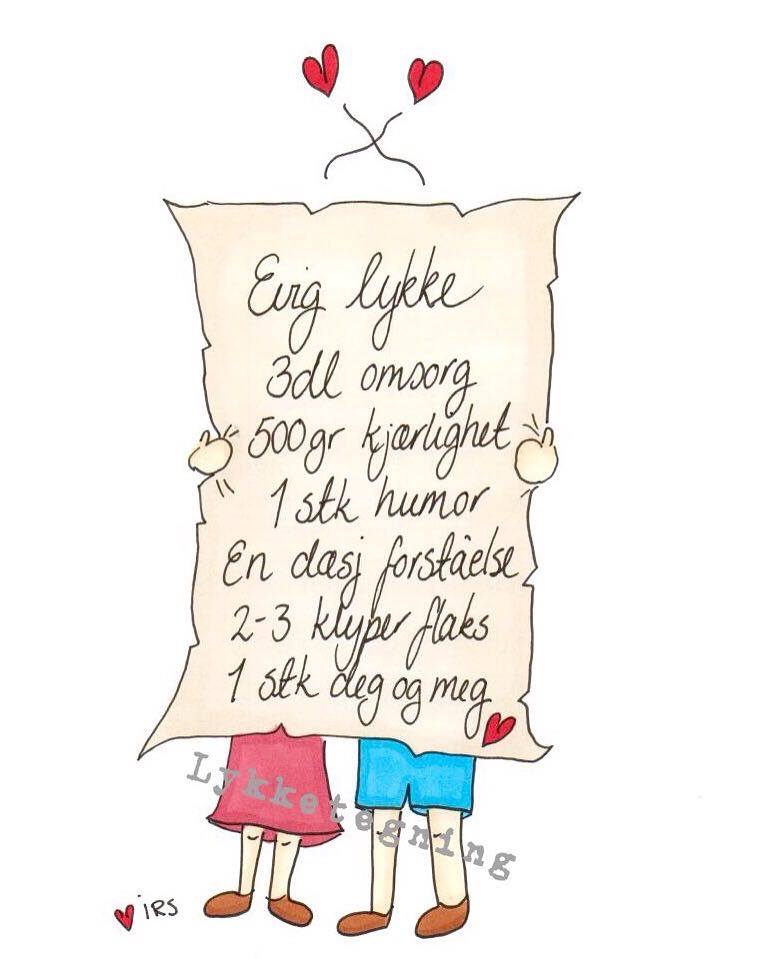 Evig lykke
3dl omsorg
500gr kjærlighet
1 stk humor
En dæsj forståelse
2-3 klyper flaks
1 stk deg og meg
Lykketegning
iRS